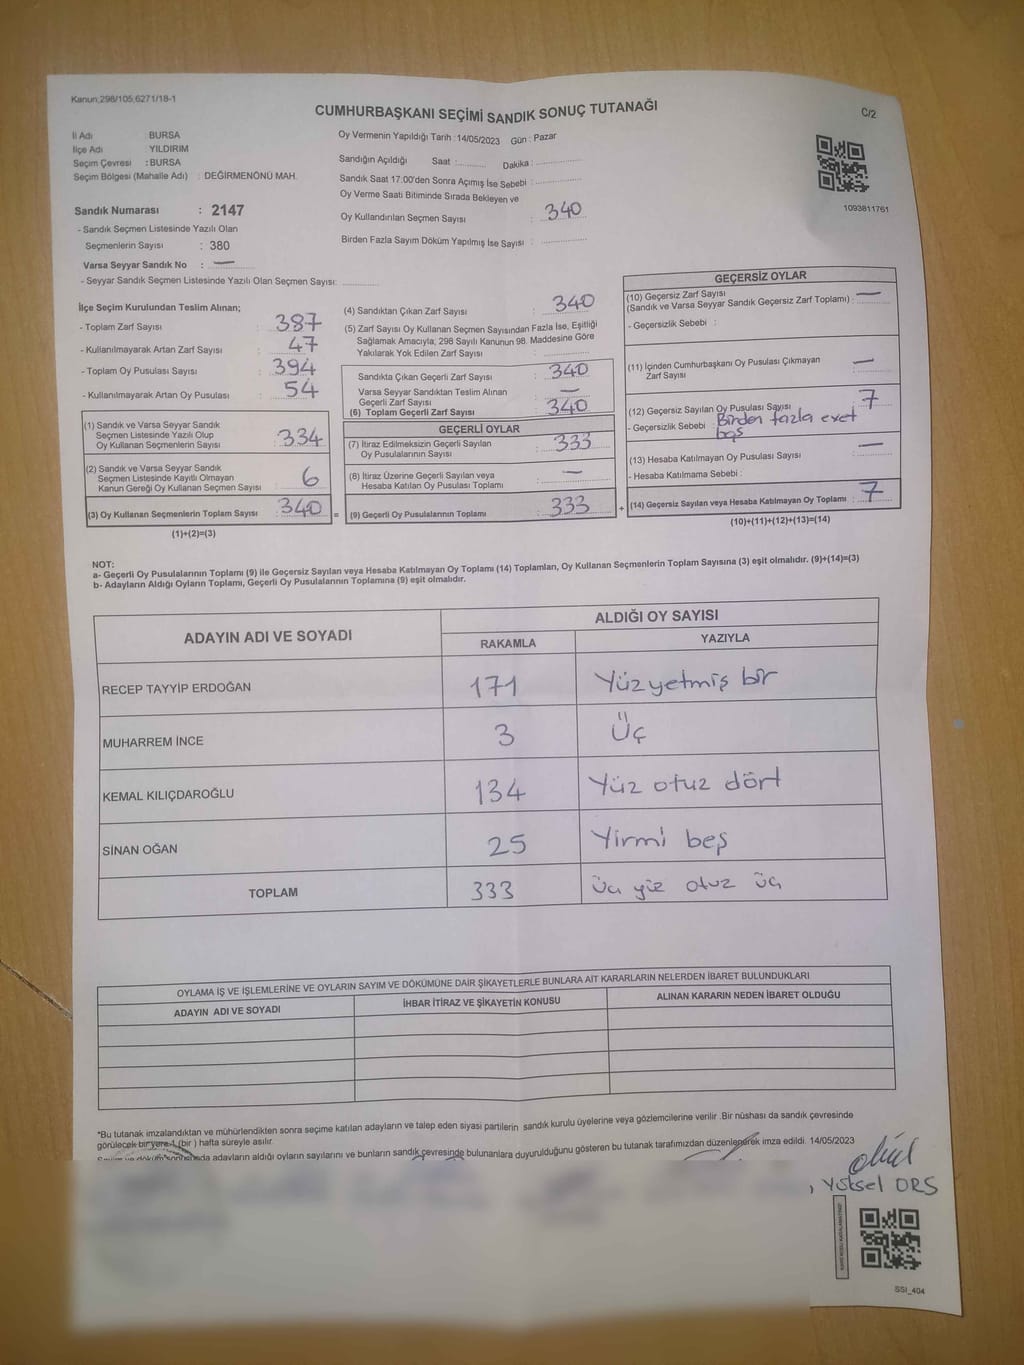 Kanun:298/105,6271/18-1
CUMHURBAŞKANI SEÇİMİ SANDIK SONUÇ TUTANAĞI
C/2
İl Adı : BURSA
İlçe Adı : YILDIRIM
Seçim Çevresi : BURSA
Seçim Bölgesi (Mahalle Adı) : DEĞİRMENÖNÜ MAH.
Sandık Numarası : 2147
- Sandık Seçmen Listesinde Yazılı Olan
Seçmenlerin Sayısı : 380
Varsa Seyyar Sandık No : —
- Seyyar Sandık Seçmen Listesinde Yazılı Olan Seçmen Sayısı:
Oy Vermenin Yapıldığı Tarih : 14/05/2023 Gün : Pazar
Sandığın Açıldığı Saat : Dakika :
Sandık Saat 17:00'den Sonra Açımış İse Sebebi :
Oy Verme Saati Bitiminde Sırada Bekleyen ve
Oy Kullandırılan Seçmen Sayısı : 340
Birden Fazla Sayım Döküm Yapılmış İse Sayısı :
1093811761
İlçe Seçim Kurulundan Teslim Alınan;
- Toplam Zarf Sayısı : 387
- Kullanılmayarak Artan Zarf Sayısı : 47
- Toplam Oy Pusulası Sayısı : 394
- Kullanılmayarak Artan Oy Pusulası : 54
(1) Sandık ve Varsa Seyyar Sandık
Seçmen Listesinde Yazılı Olup
Oy Kullanan Seçmenlerin Sayısı : 334
(2) Sandık ve Varsa Seyyar Sandık
Seçmen Listesinde Kayıtlı Olmayan
Kanun Gereği Oy Kullanan Seçmen Sayısı : 6
(3) Oy Kullanan Seçmenlerin Toplam Sayısı : 340 =
(1)+(2)=(3)
(4) Sandıktan Çıkan Zarf Sayısı : 340
(5) Zarf Sayısı Oy Kullanan Seçmen Sayısından Fazla İse, Eşitliği
Sağlamak Amacıyla, 298 Sayılı Kanunun 98. Maddesine Göre
Yakılarak Yok Edilen Zarf Sayısı :
Sandıkta Çıkan Geçerli Zarf Sayısı : 340
Varsa Seyyar Sandıktan Teslim Alınan
Geçerli Zarf Sayısı : —
(6) Toplam Geçerli Zarf Sayısı : 340
GEÇERLİ OYLAR
(7) İtiraz Edilmeksizin Geçerli Sayılan
Oy Pusulalarının Sayısı : 333
(8) İtiraz Üzerine Geçerli Sayılan veya
Hesaba Katılan Oy Pusulası Toplamı : —
(9) Geçerli Oy Pusulalarının Toplamı : 333 +
GEÇERSİZ OYLAR
(10) Geçersiz Zarf Sayısı
(Sandık ve Varsa Seyyar Sandık Geçersiz Zarf Toplamı) : —
- Geçersizlik Sebebi :
(11) İçinden Cumhurbaşkanı Oy Pusulası Çıkmayan
Zarf Sayısı : —
(12) Geçersiz Sayılan Oy Pusulası Sayısı : 7
- Geçersizlik Sebebi : Birden fazla evet
boş
(13) Hesaba Katılmayan Oy Pusulası Sayısı : —
- Hesaba Katılmama Sebebi :
(14) Geçersiz Sayılan veya Hesaba Katılmayan Oy Toplamı : 7
(10)+(11)+(12)+(13)=(14)
NOT:
a- Geçerli Oy Pusulalarının Toplamı (9) ile Geçersiz Sayılan veya Hesaba Katılmayan Oy Toplamı (14) Toplamları, Oy Kullanan Seçmenlerin Toplam Sayısına (3) eşit olmalıdır. (9)+(14)=(3)
b- Adayların Aldığı Oyların Toplamı, Geçerli Oy Pusulalarının Toplamına (9) eşit olmalıdır.
ADAYIN ADI VE SOYADI
ALDIĞI OY SAYISI
RAKAMLA YAZIYLA
RECEP TAYYİP ERDOĞAN 171 Yüzyetmiş bir
MUHARREM İNCE 3 Üç
KEMAL KILIÇDAROĞLU 134 Yüz otuz dört
SİNAN OĞAN 25 Yirmi beş
TOPLAM 333 üç yüz otuz üç
OYLAMA İŞ VE İŞLEMLERİNE VE OYLARIN SAYIM VE DÖKÜMÜNE DAİR ŞİKAYETLERLE BUNLARA AİT KARARLARIN NELERDEN İBARET BULUNDUKLARI
ADAYIN ADI VE SOYADI İHBAR İTİRAZ VE ŞİKAYETİN KONUSU ALINAN KARARIN NEDEN İBARET OLDUĞU
*Bu tutanak imzalandıktan ve mühürlendikten sonra seçime katılan adayların ve talep eden siyasi partilerin sandık kurulu üyelerine veya gözlemcilerine verilir .Bir nüshası da sandık çevresinde
görülecek bir yere 1 (bir ) hafta süreyle asılır.
adayların aldığı oyların sayılarını ve bunların sandık çevresinde bulunanlara duyurulduğunu gösteren bu tutanak tarafımızdan düzenlenerek imza edildi. 14/05/2023
, Yüksel ORS
SSI_404